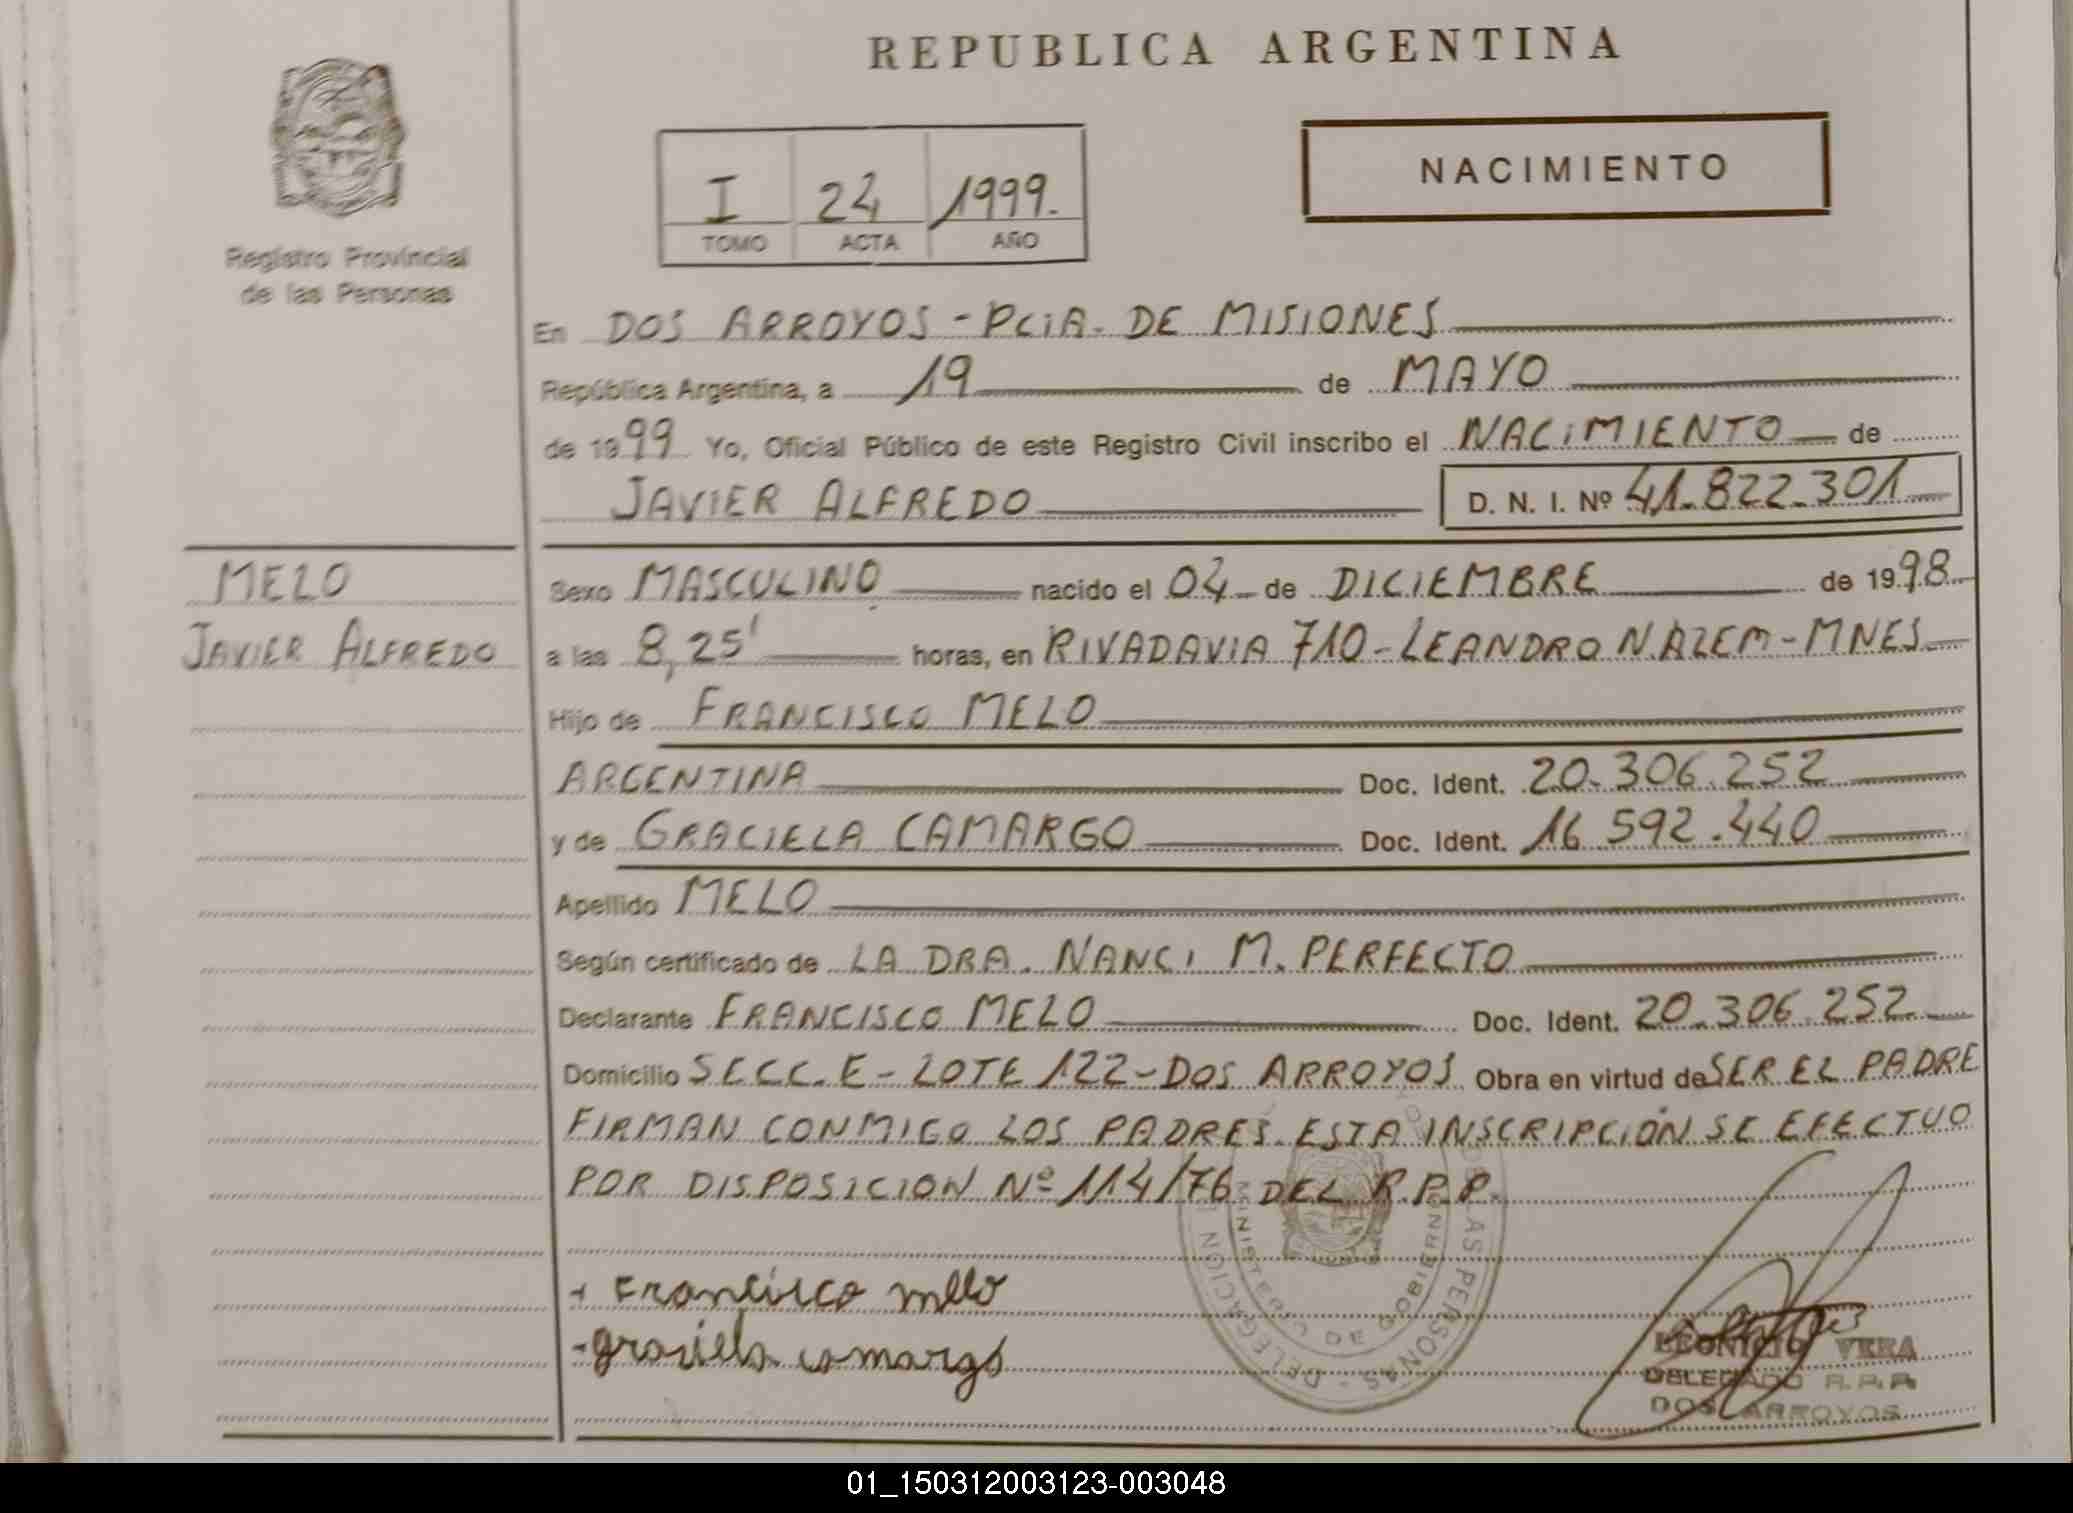 REPUBLICA ARGENTINA
NACIMIENTO
I 24 1999.
TOMO ACTA AÑO
Registro Provincial
de las Personas
En DOS ARROYOS - PCiA. DE MISIONES
República Argentina, a 19 de MAYO
de 1999 Yo, Oficial Público de este Registro Civil inscribo el NACIMIENTO de
JAVIER ALFREDO D. N. I. Nº 41.822.301
MELO
JAVIER ALFREDO
Sexo MASCULINO nacido el 04 de DICIEMBRE de 1998
a las 8,25' horas, en RIVADAVIA 710 - LEANDRO N. ALEM - MNES
Hijo de FRANCISCO MELO
ARGENTINA Doc. Ident. 20.306.252
y de GRACIELA CAMARGO Doc. Ident. 16.592.440
Apellido MELO
Según certificado de LA DRA. NANCI M. PERFECTO
Declarante FRANCISCO MELO Doc. Ident. 20.306.252
Domicilio SECC. E - LOTE 122 - DOS ARROYOS Obra en virtud de SER EL PADRE
FIRMAN CONMIGO LOS PADRES. ESTA INSCRIPCIÓN SE EFECTUO
POR DISPOSICION Nº 114/76 DEL R.P.P.
Francisco mello
graciela camargo
MINISTERIO DE GOBIERNO
LAS PERSONAS - DELEGACION
LEONICIO VERA
DELEGADO R.P.P.
DOS ARROYOS
01_150312003123-003048